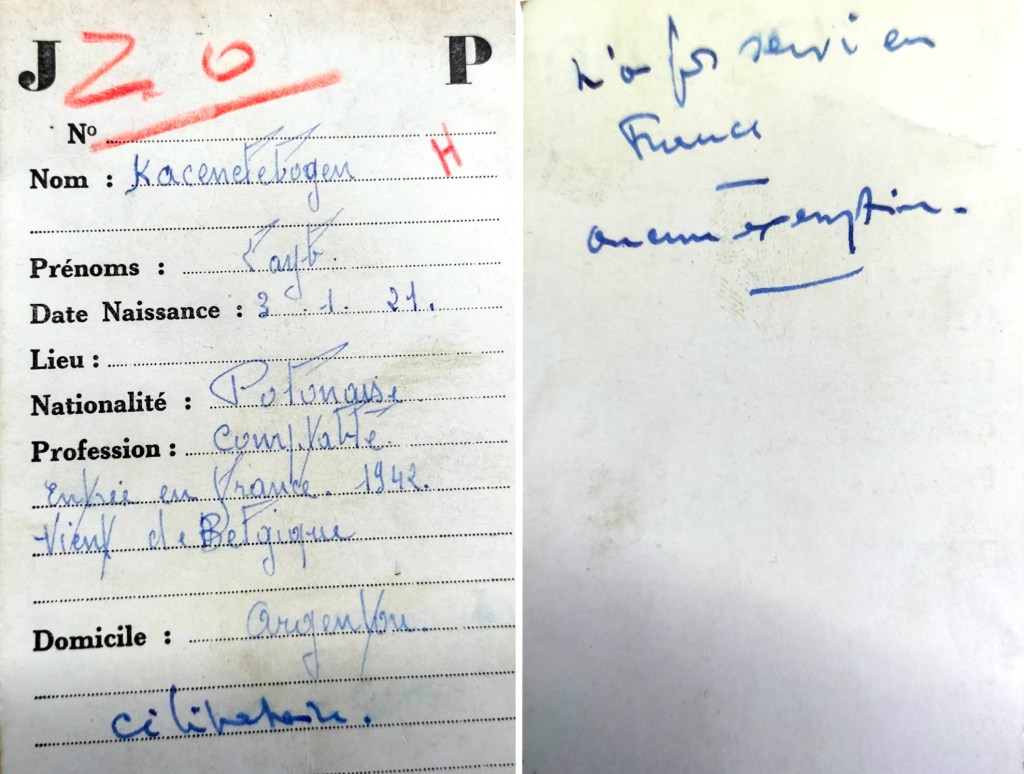 J ZO P
Nº
Nom : Kacenelebogen H
Prénoms :
Date Naissance : 3.1.21.
Lieu :
Nationalité : Polonaise
Profession : Comptable
Entrée en France. 1942.
Vient de Belgique
Domicile : Argenton.
célibataire.
n'a pas servi en
France
aucune exemption.